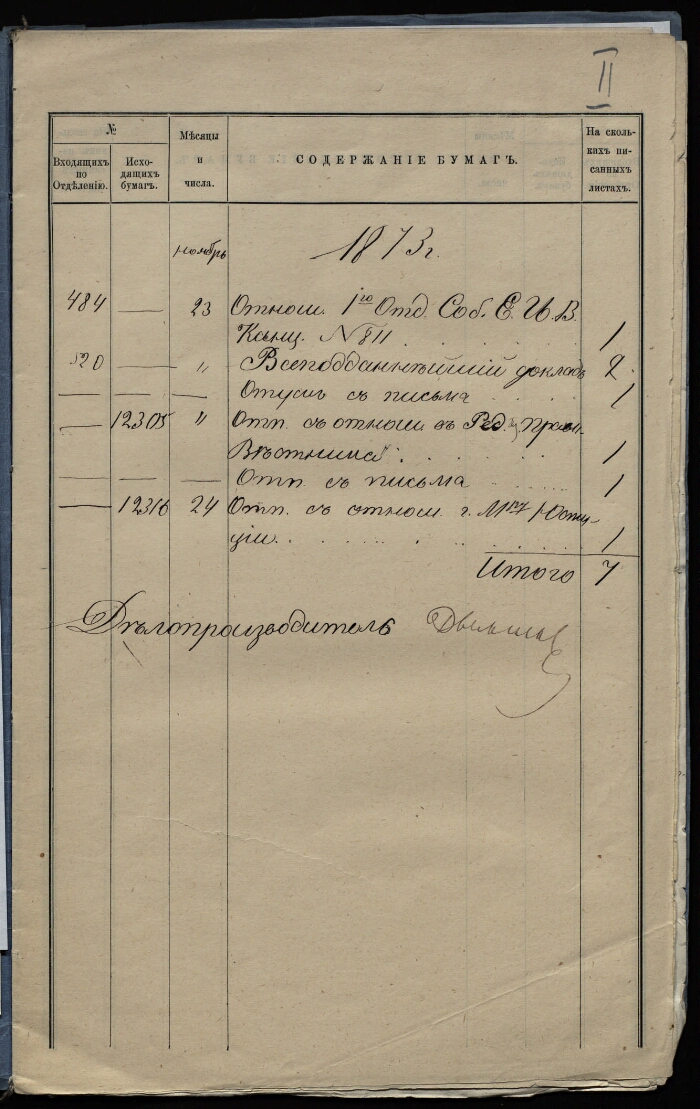 II
№
Входящихъ по Отдѣленію.
Исходящихъ бумагъ.
Мѣсяцы и числа.
СОДЕРЖАНІЕ БУМАГЪ.
На сколькихъ писанныхъ листахъ.
ноябрь 1873 г.
484 — 23 Относи. 1го Отд. Соб. Е. И. В.
Канц. № 811 . . . . 1
520 — " Всеподданнѣйшій докладъ 2
— — — Отпускъ съ письма . . . . 1
— 12305 " Отп. съ относи. въ Ред. Прав.
Вѣстника . . . . 1
— — — Отп. съ письма . . . . 1
— 12316 24 Отп. съ относи. г. Мру Юсти-
ціи . . . . 1
Итого 7
Дѣлопроизводитель